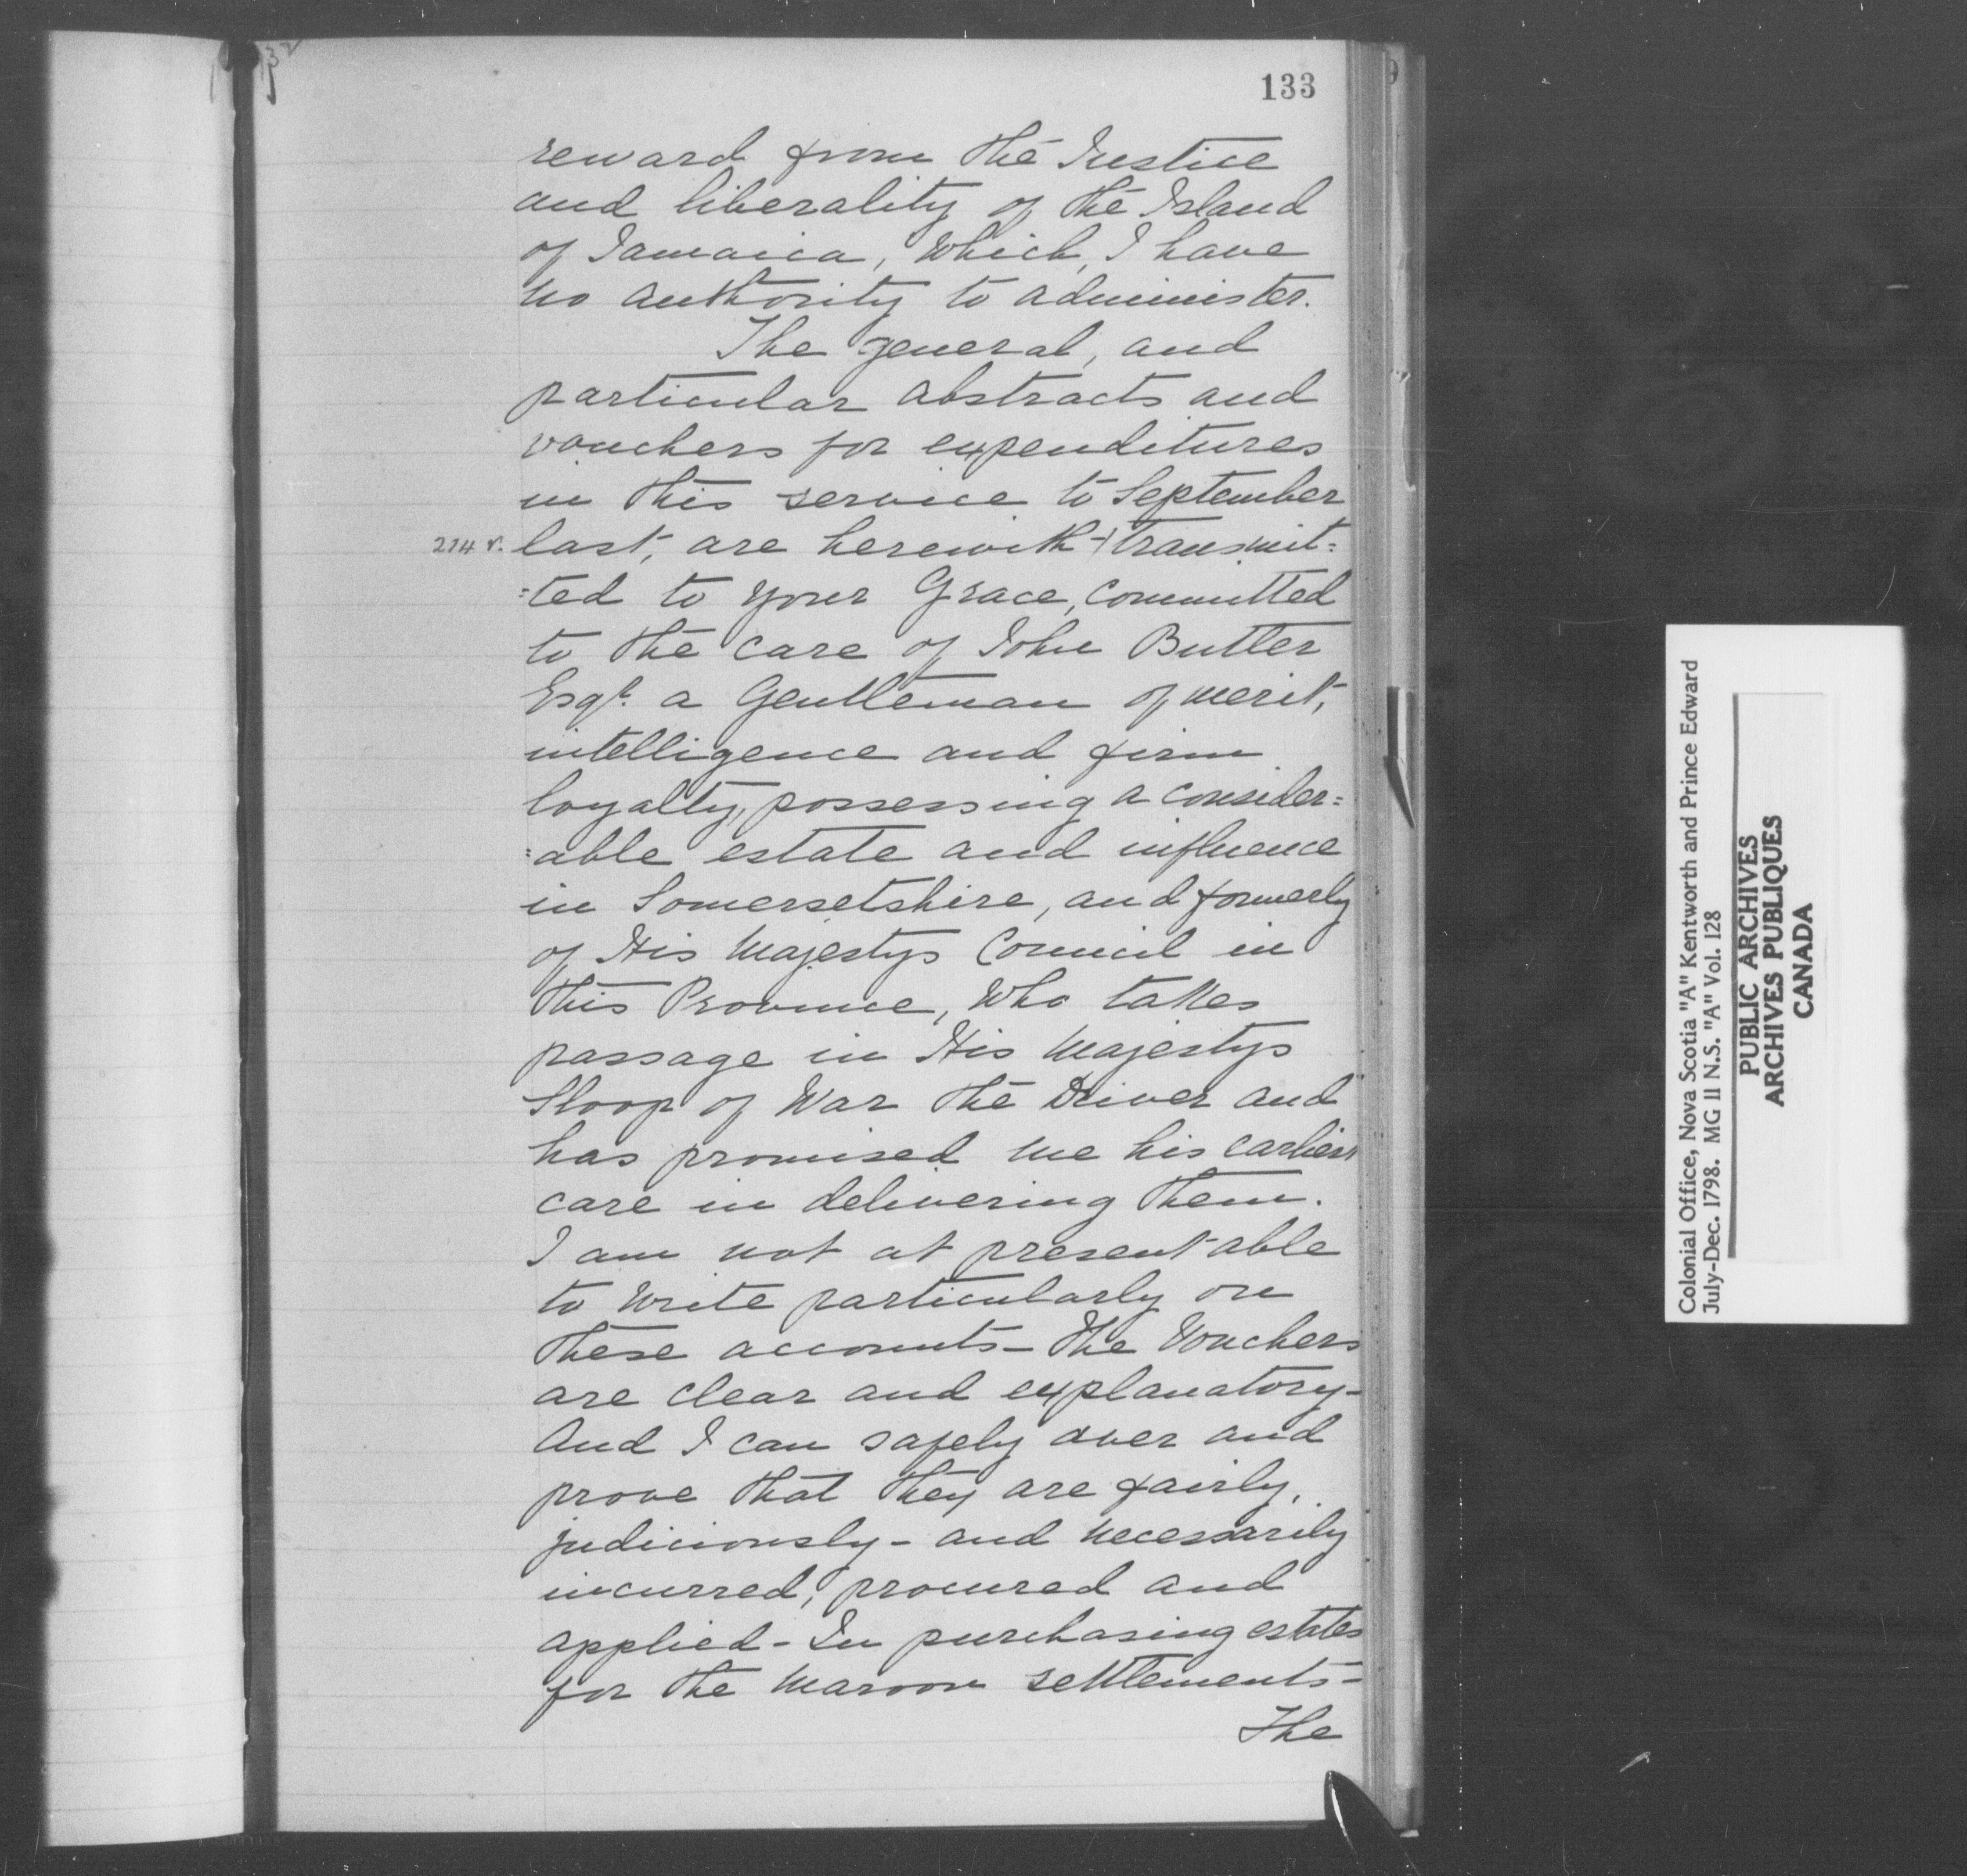 133
reward from the Justice
and liberality of the Island
of Jamaica, which, I have
no authority to administer.
The general, and
particular abstracts and
vouchers for expenditures
in this service to September
214 v. last, are herewith transmit=
=ted to your Grace, committed
to the care of John Butler
Esqr. a Gentleman of merit,
intelligence and firm
loyalty, possessing a consider=
=able estate and influence
in Somersetshire, and formerly
of His Majestys Council in
this Province, who takes
passage in His Majestys
Sloop of War the Driver and
has promised me his earliest
care in delivering them.
I am not at present able
to write particularly on
these accounts - the Vouchers
are clear and explanatory -
And I can safely aver and
prove that they are fairly,
judiciously - and necessarily
incurred, procured and
applied - In purchasing estates
for the Maroon settlements -
The
Colonial Office, Nova Scotia "A" Kentworth and Prince Edward
July-Dec. 1798. MG 11 N.S. "A" Vol. 128
PUBLIC ARCHIVES
ARCHIVES PUBLIQUES
CANADA